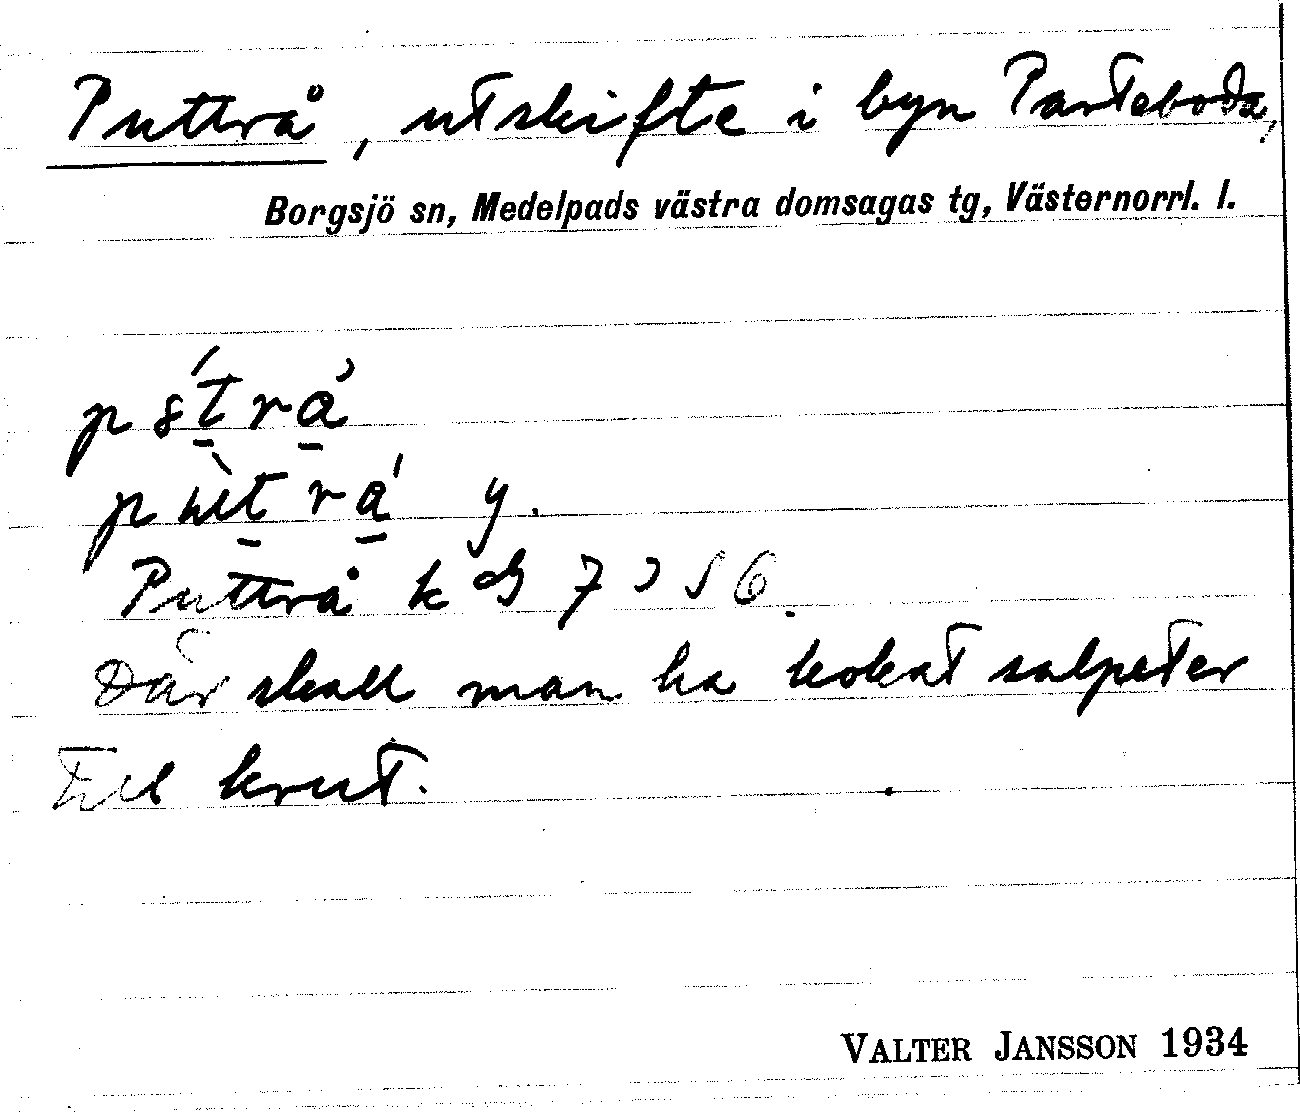 Puttrå, utskifte i byn Parteboda,
Borgsjö sn, Medelpads västra domsagas tg, Västernorrl. l.
y.
Puttrå k
Där skall man ha kokat salpeter
till krut.
VALTER JANSSON 1934